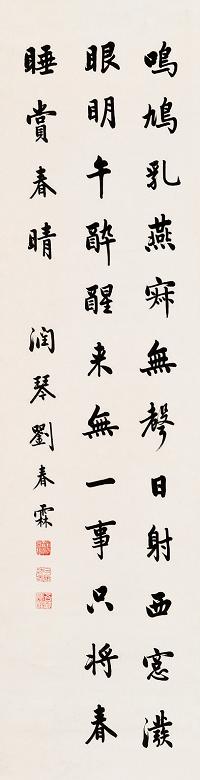 鳴鳩乳燕寂無聲日射西窻潑
眼明午醉醒来無一事只将春
睡賞春晴 潤琴劉春霖